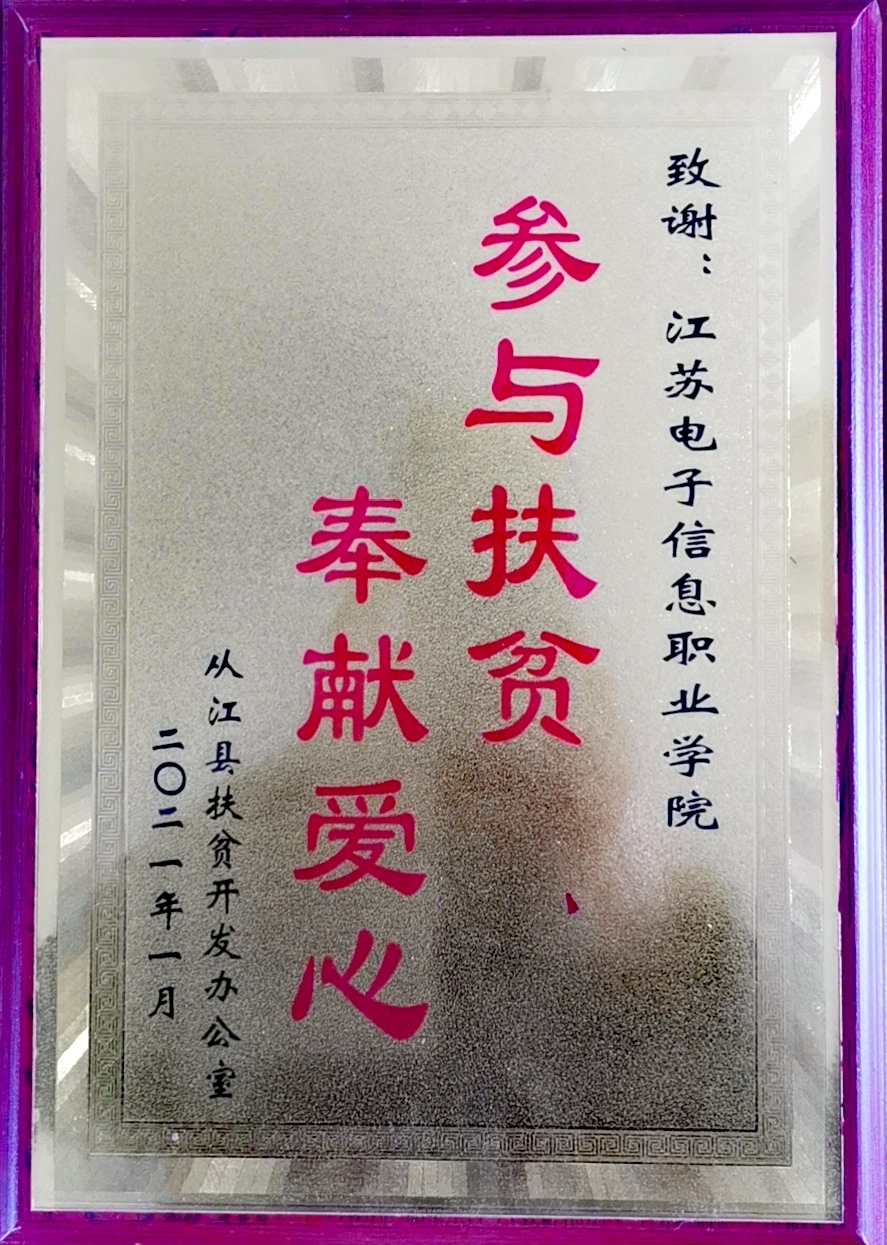 致谢：江苏电子信息职业学院
参与扶贫、
奉献爱心
从江县扶贫开发办公室
二〇二一年一月